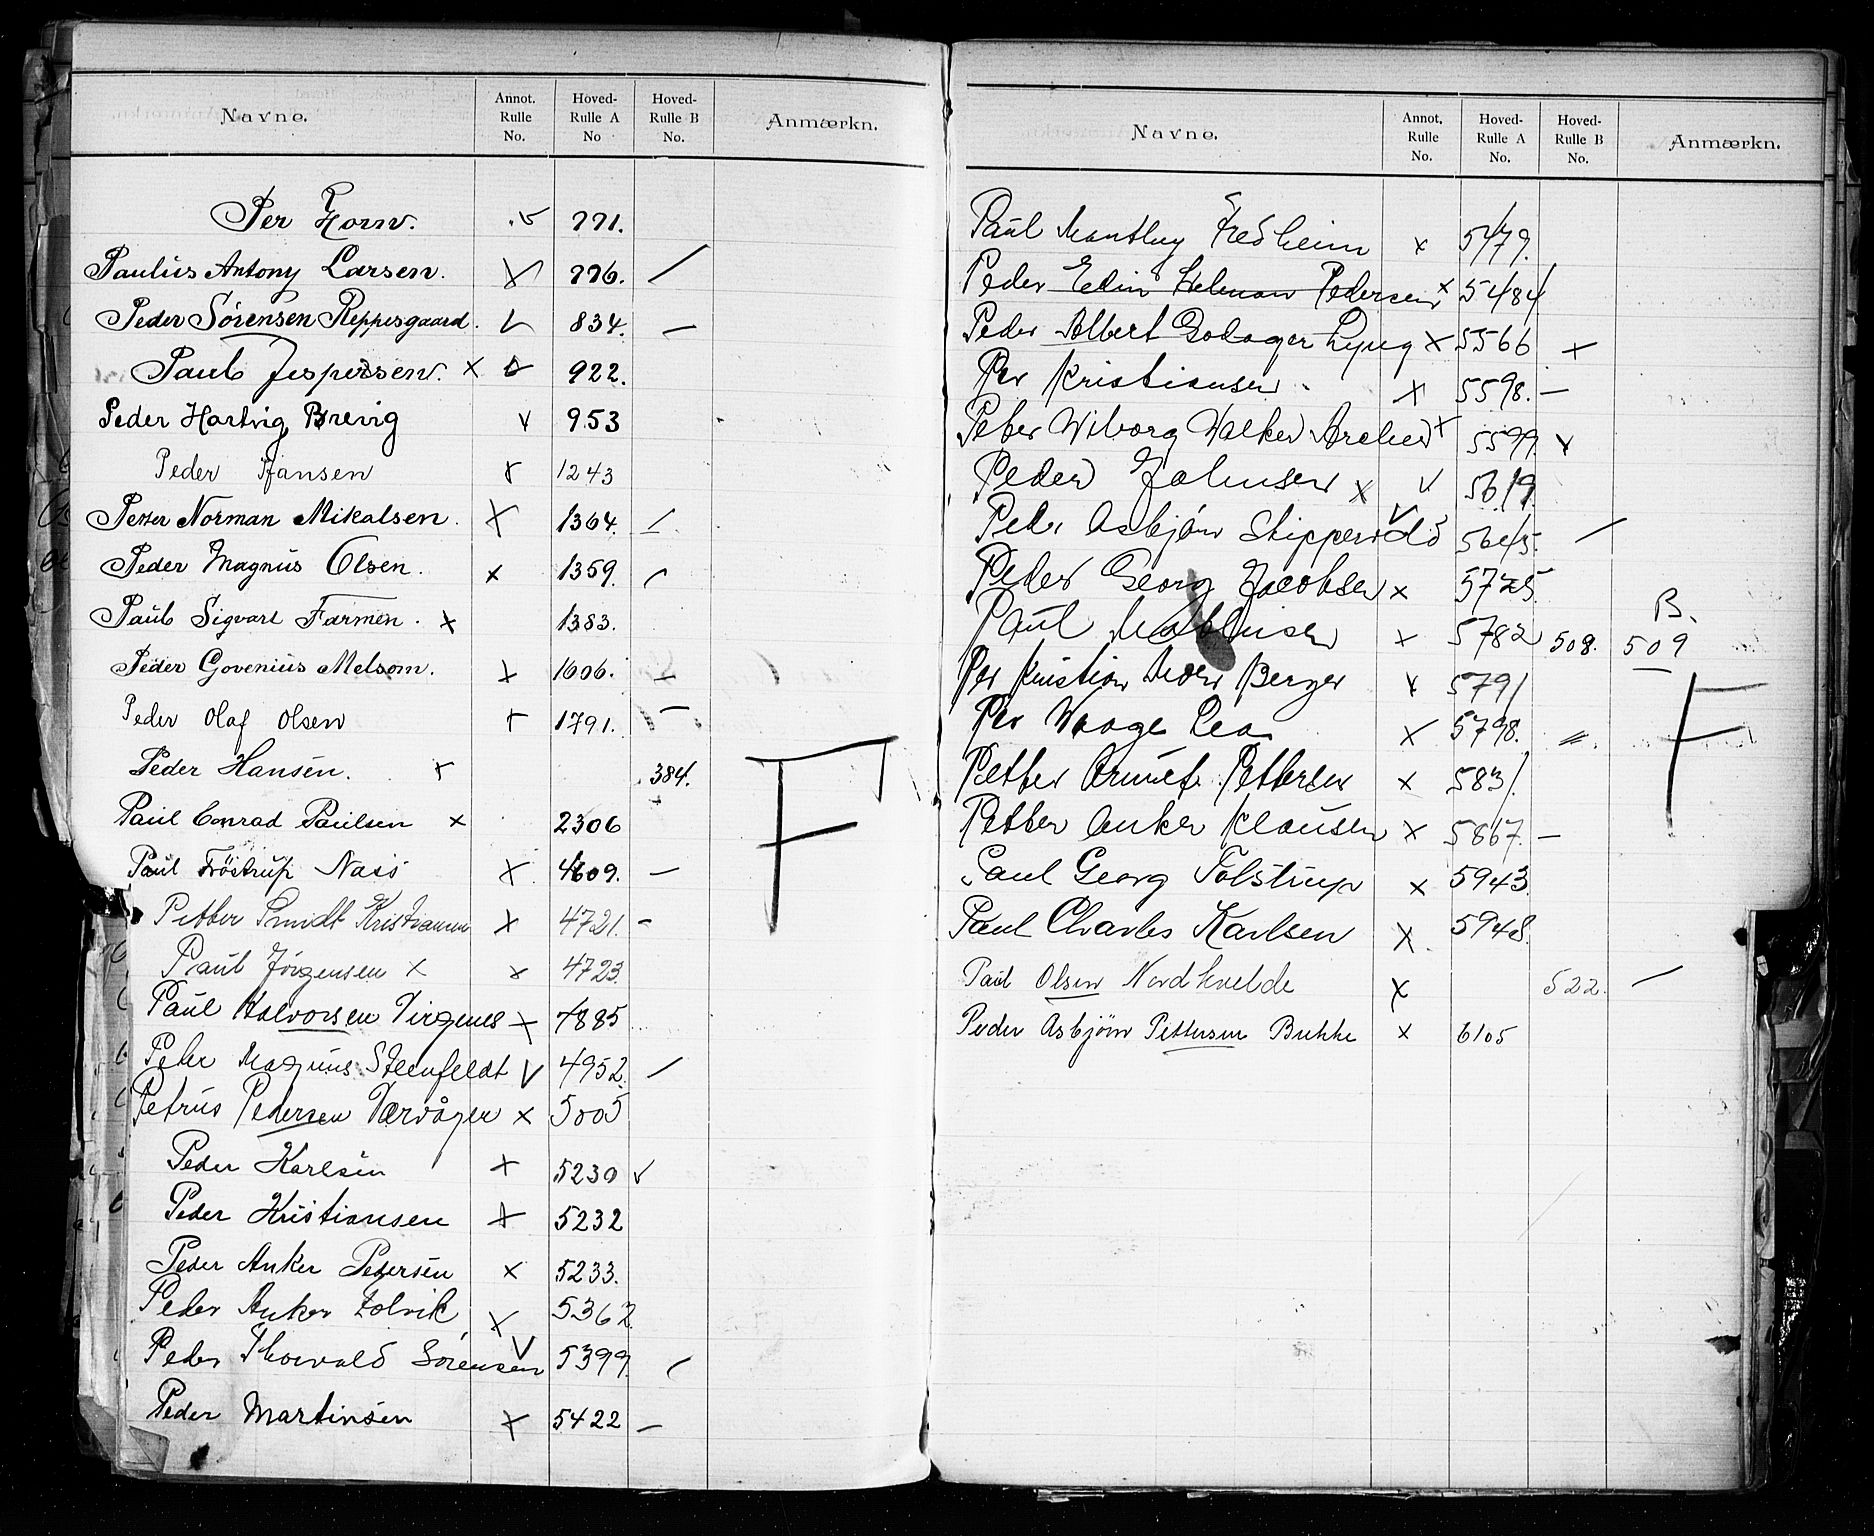 Navne. Annot. Rulle No. Hoved-Rulle A No Hoved-Rulle B No. Anmærkn.
Per Horn. v 771.
Paulus Antony Larsen. X 776. /
Peder Sörensen Reppesgaard. v 834. –
Paul Jespersen. x v 922.
Peder Hartvig Brevig v 953
Peder Hansen x 1243
Petter Norman Mikalsen. X 1364. /
Peder Magnus Olsen. x 1359. /
Paul Sigvart Farmen. x 1383.
Peder Govenius Melsom. x 1606. –
Peder Olaf Olsen x 1791. –
Peder Hansen. x 384.
Paul Conrad Paulsen x 2306
F
Paul Fröstrup Nass x 4609. –
Petter Smidt Kristiansen x 4721. –
Paul Jörgensen x x 4723.
Paul Halvorsen Virgenes x 4885
Peder Magnus Steenfeldt v 4952. /
Petrus Pedersen Værvågen x 5005
Peder Karlsen x 5230 v
Peder Kristiansen x 5232
Peder Anker Pedersen x 5233.
Peder Anker Solvik x 5362
Peder Thorvald Sörensen v 5399. /
Peder Martinsen x 5422 –
Navne. Annot. Rulle No. Hoved-Rulle A No. Hoved-Rulle B No. Anmærkn.
Paul Fredheim x 5479.
Peder Edin Pedersen x 5484
Peder Albert Godager Lyng x 5566 x
Per Kristiansen x 5598. –
Peter Wiborg Walker Archer x 5599. x
Peder Johnsen x v 5619.
Peder Asbjörn v 5645. /
Peder Georg Jacobsen x 5725.
B.
Paul x 5782 508. 509
Per Kristian Moer Berger x 5791
Per Waage Lea x 5798. //.
F
Petter Pettersen x 5831.
Petter Anker Klausen x 5867. –
Paul Georg Tolstrup x 5943.
Paul Charles Karlsen x 5948.
Paul Olsen Nordhvelde x 522. –
Peder Asbjörn Pettersen Buhke x 6105